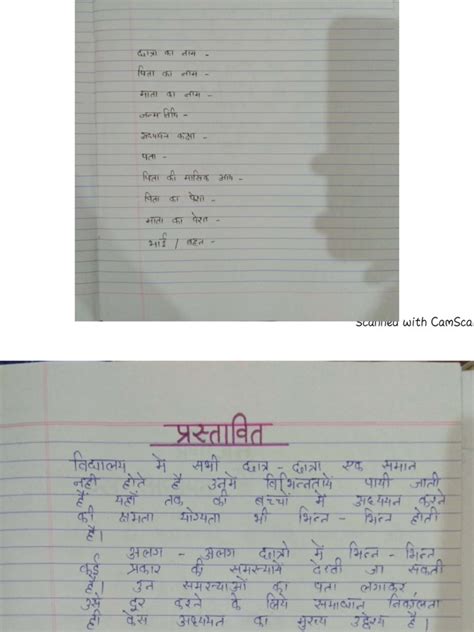 छात्रा का नाम -
पिता का नाम -
माता का नाम -
जन्म तिथि -
अध्ययन कक्षा -
पता -
पिता की मासिक आय -
पिता का पेशा -
माता का पेशा -
भाई / बहन -
Scanned with CamSca
प्रस्तावित
विद्यालय में सभी छात्र - छात्रा एक समान
नही होते है उनमे विभिन्नताये पायी जाती
है यहाँ तक की बच्चों में अध्ययन करने
की क्षमता योग्यता भी भिन्न - भिन्न होती
है।
अलग - अलग छात्रो में भिन्न - भिन्न
कई प्रकार की समस्याये देखी जा सकती
है। इन समस्याओं का पता लगाकर
उसे दूर करने के लिये समाधान निकालना
ही केस अध्ययन का मुख्य उद्देश्य है।